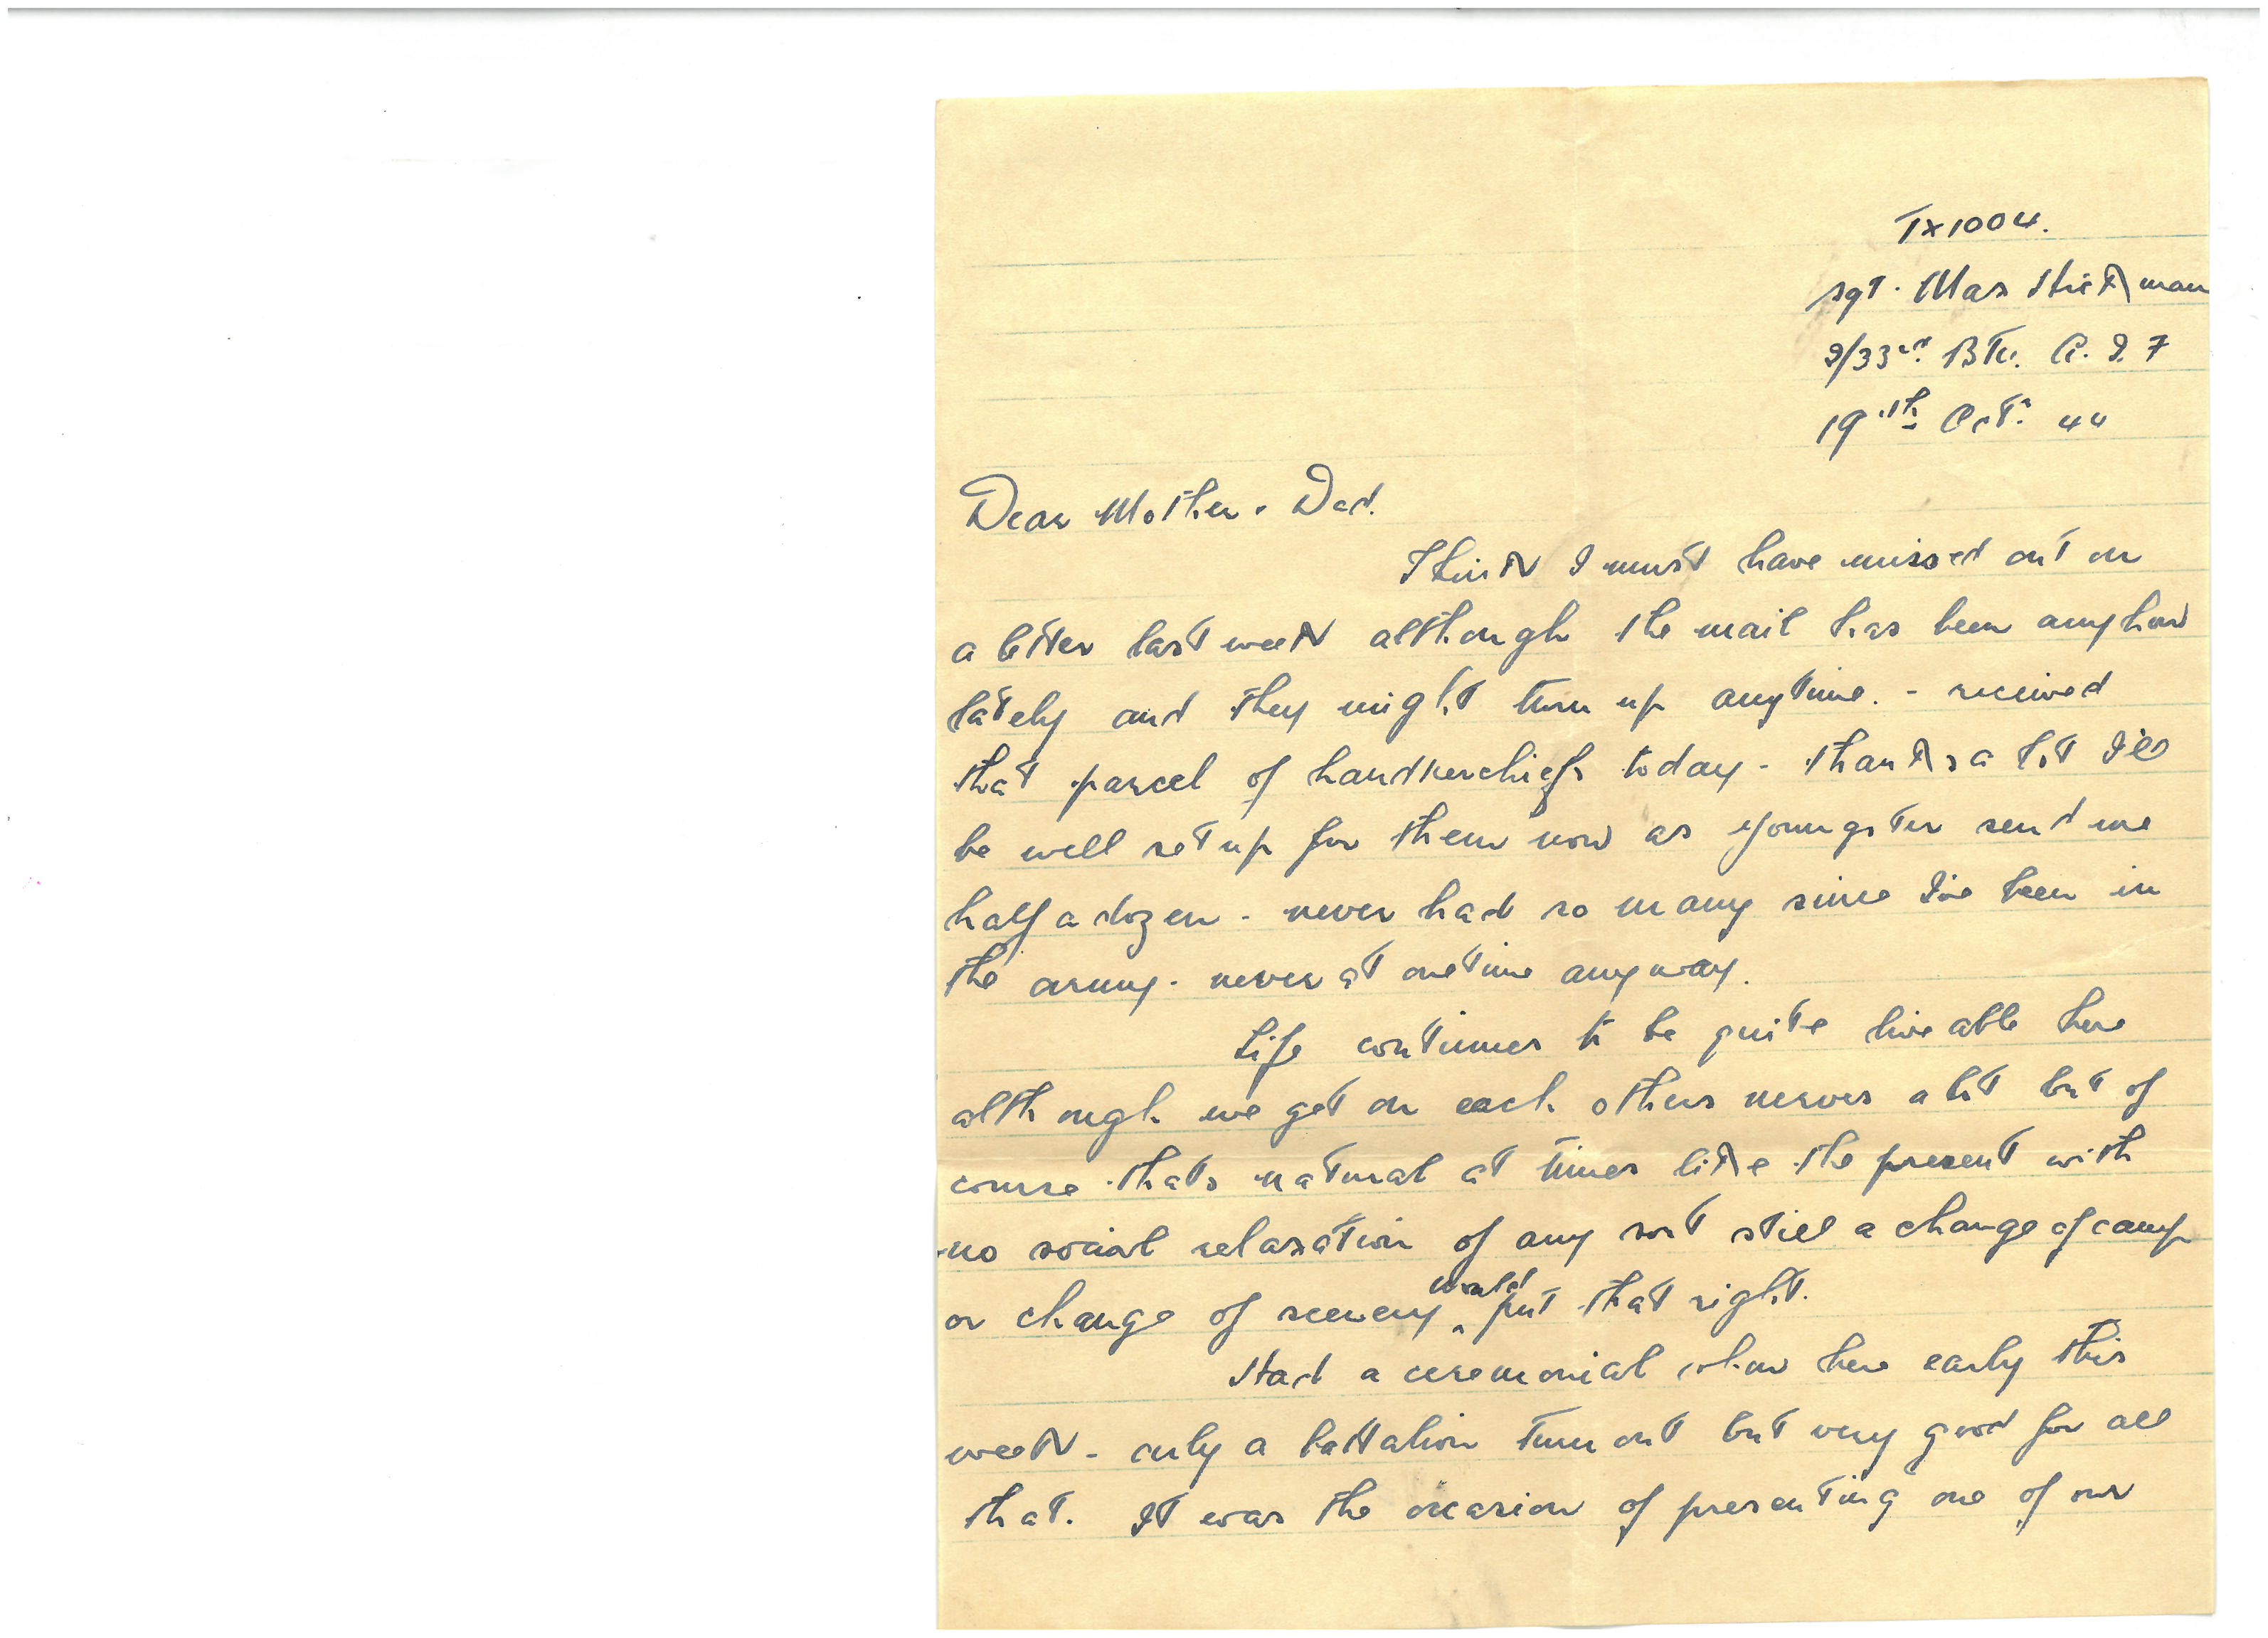 TX1004.
Sgt. Max Hickman
2/33rd. Btn. A.I.F
19th Oct. 44
Dear Mother & Dad.
Think I must have missed out on
a letter last week although the mail has been anyhow
lately and they might turn up anytime. - received
that parcel of handkerchiefs today - thanks a lot I'll
be well set up for them now as youngster send me
half a dozen - never had so many since I've been in
the army - never at one time anyway.
Life continues to be quite liveable here
although we get on each others nerves a bit but of
course thats natural at times like the present with
no social relaxation of any sort still a change of camp
or change of scenery would put that right.
Had a ceremonial show here early this
week - only a battalion turn out but very good for all
that. It was the occasion of presenting one of our